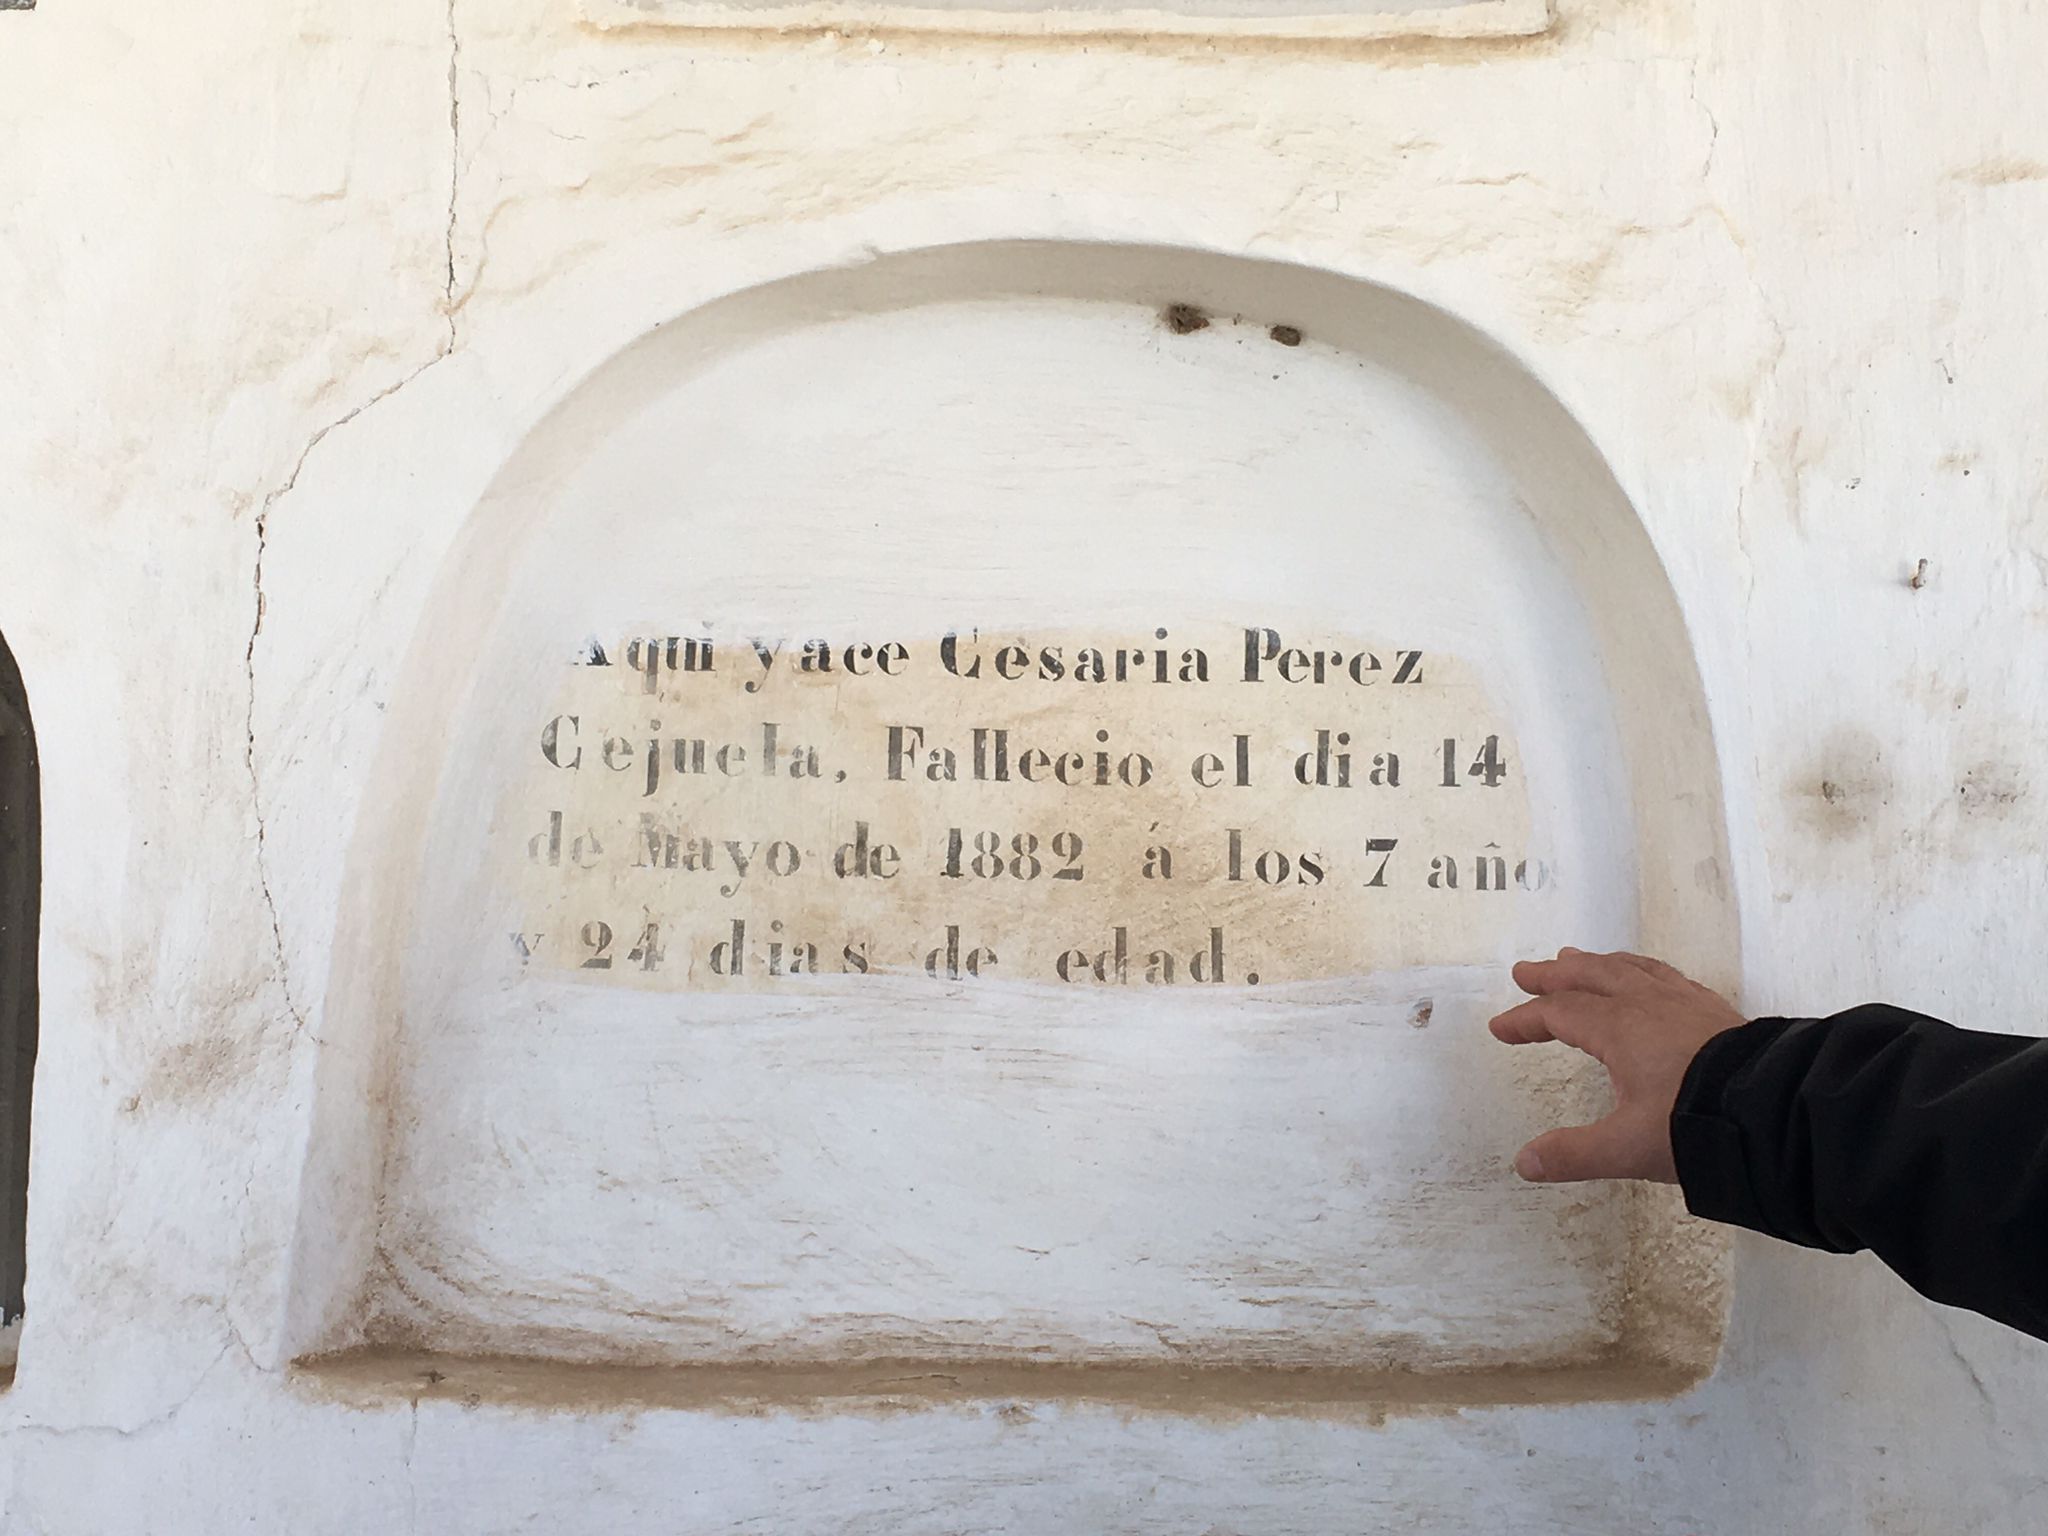 Aqui yace Cesaria Perez
Cejuela, Fallecio el dia 14
de Mayo de 1882 á los 7 año
y 24 dias de edad.